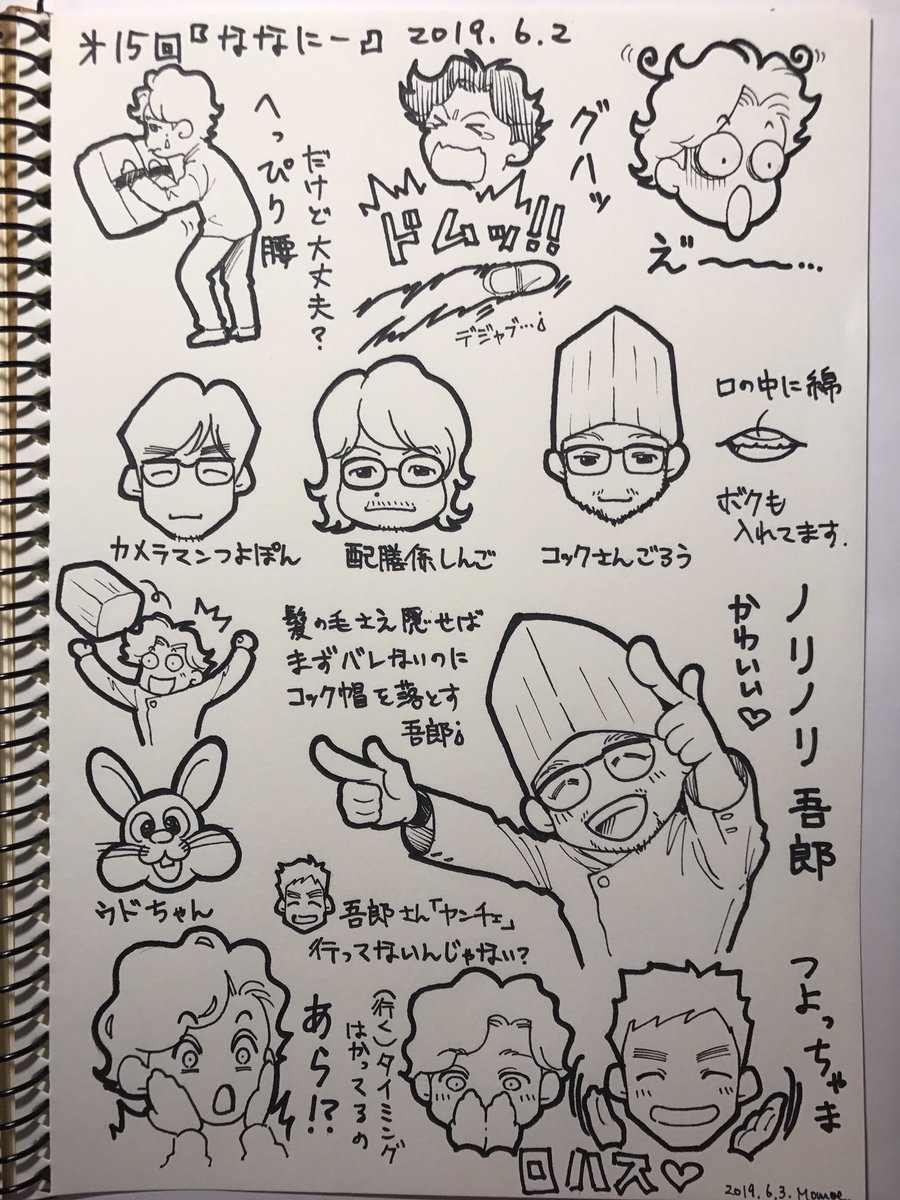 オ15回『ななにー』 2019.6.2
へっぴり腰
だけど大丈夫?
ドムッ!!
デジャブ…¡
グハッ
え゛ー〜…
カメラマンつよぽん
配膳係しんご
コックさんごろう
口の中に綿
ボクも
入れてます.
髪の毛さえ隠せば
まずバレないのに
コック帽を落とす
吾郎¡
ノリノリ吾郎
かわいい♡
ウドちゃん
吾郎さん「ヤンチェ」
行ってないんじゃない?
あら!?
(行く)タイミング
はかってるの
つよっちゃま
ロハス♡
2019.6.3.Momoe.